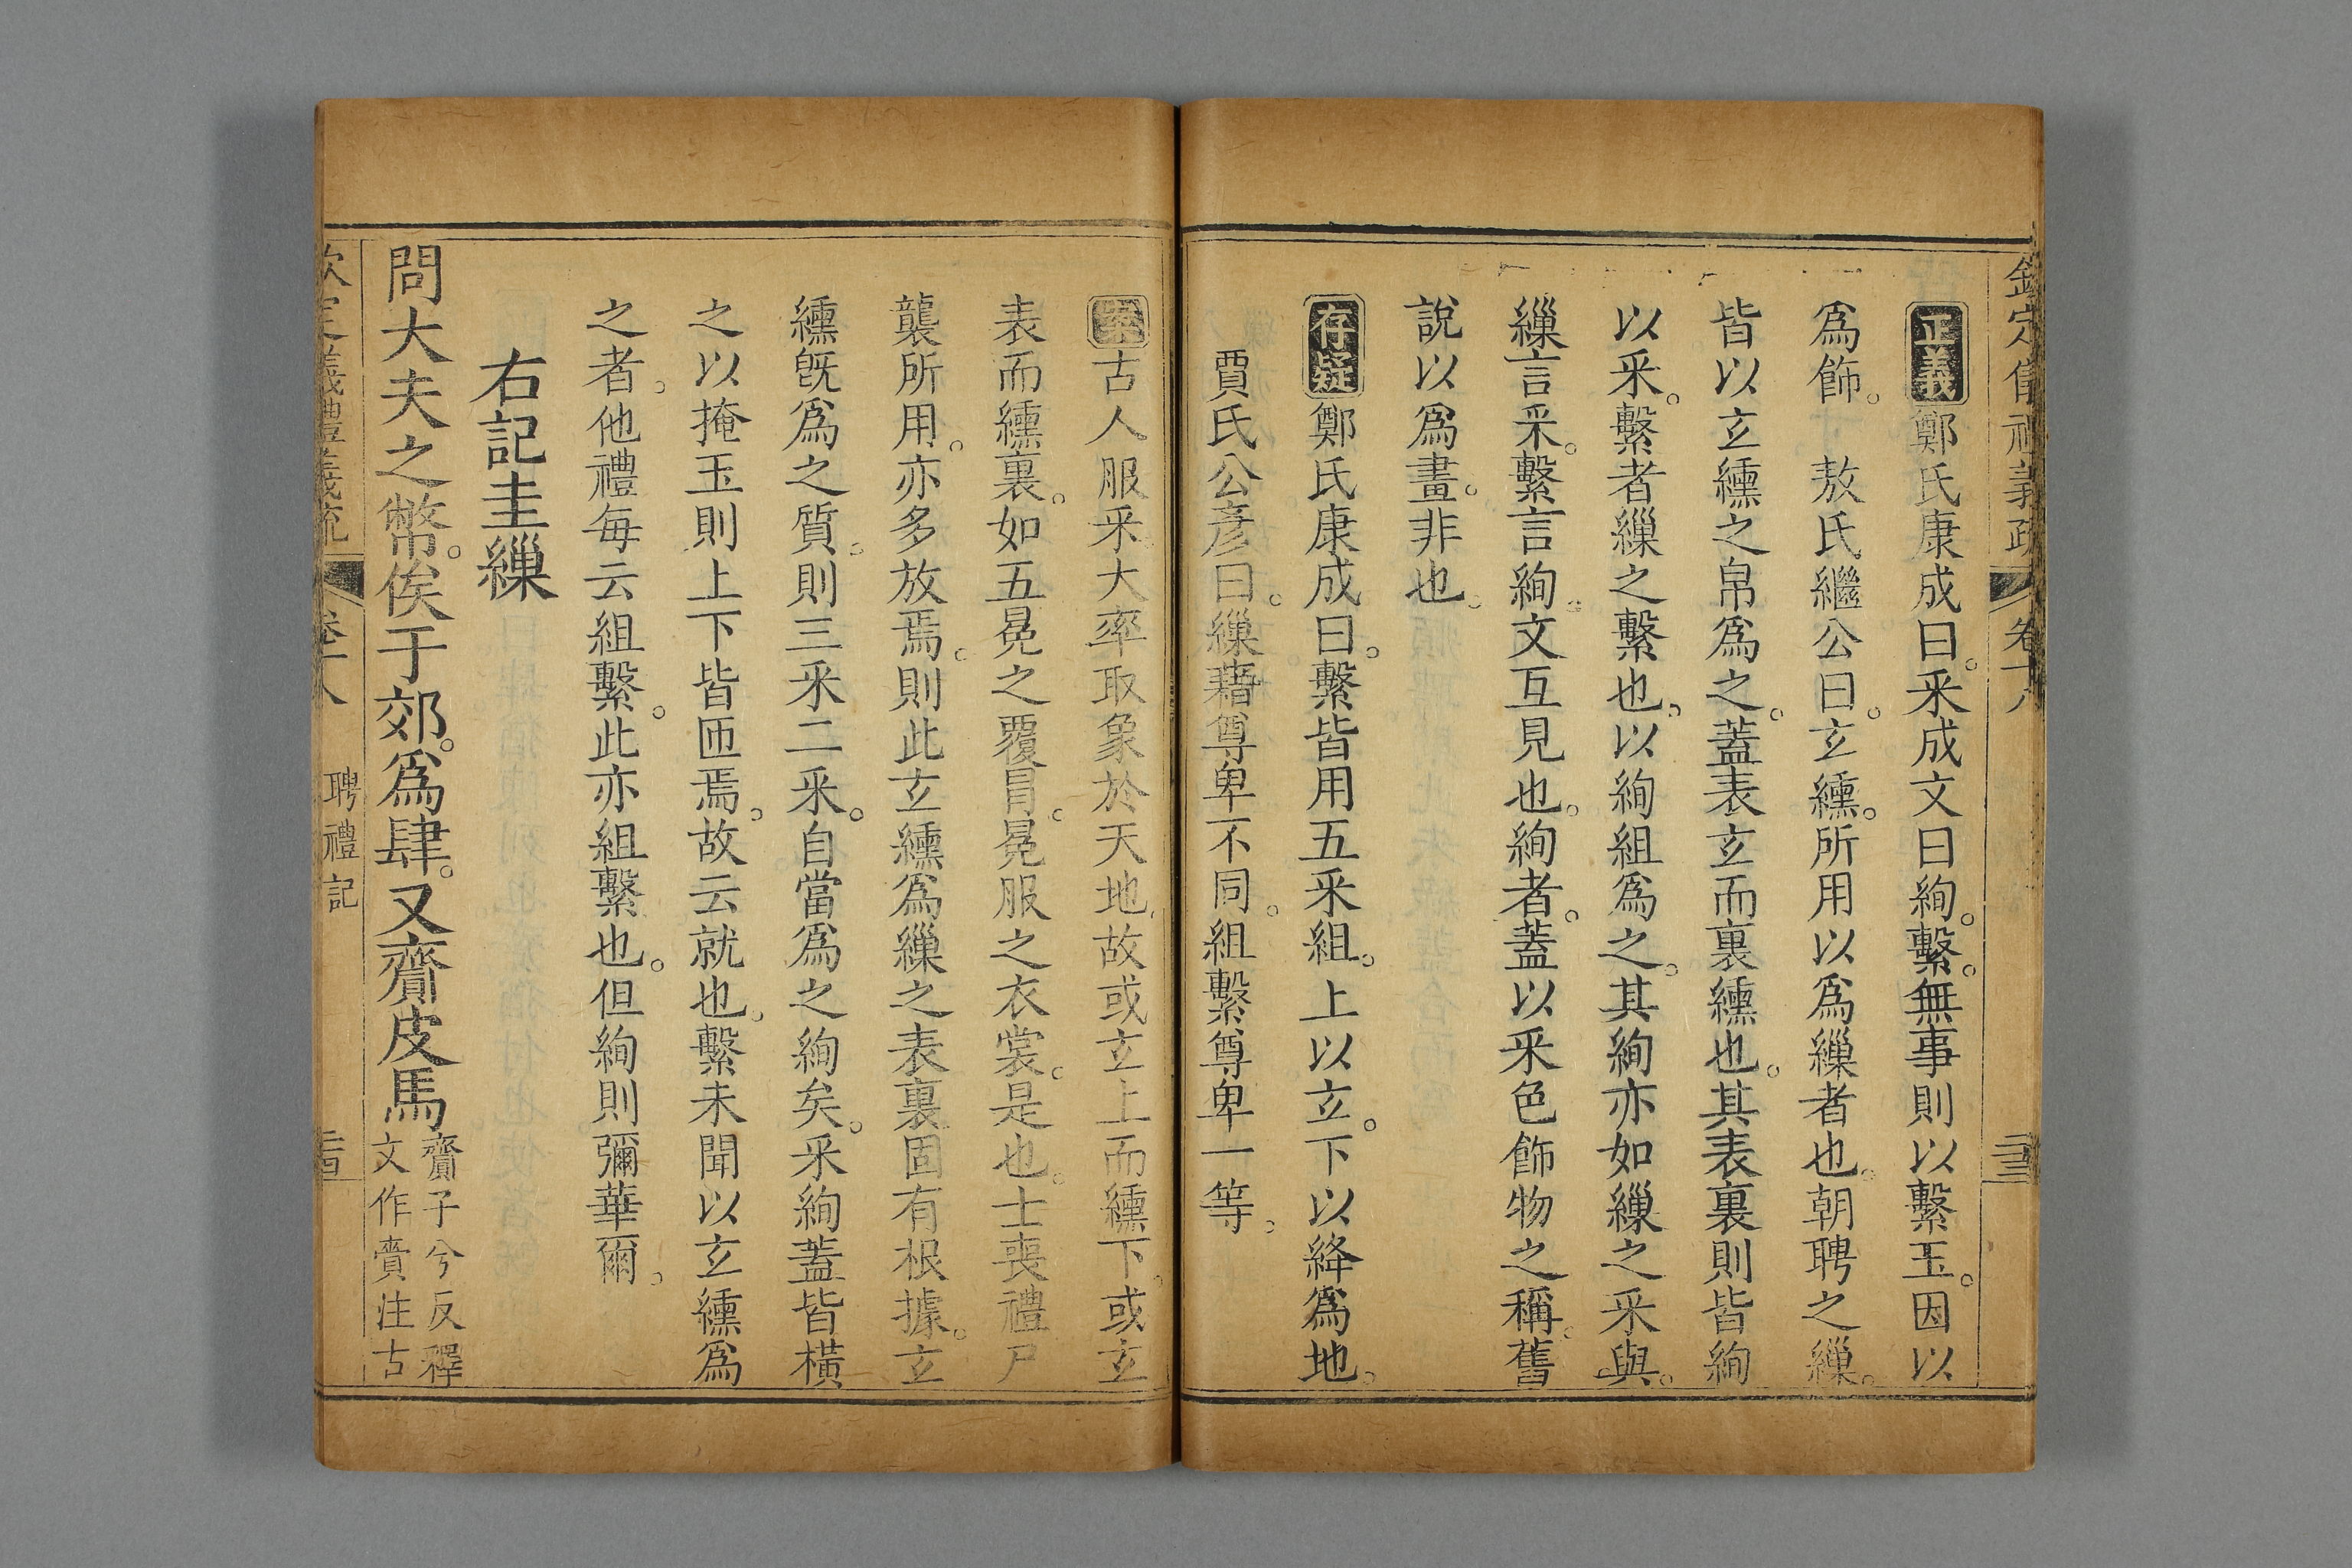 欽定儀禮義疏 卷十八
正義鄭氏康成曰。采成文曰絢。繫。無事則以繫玉。因以
爲飾。 敖氏繼公曰。玄纁。所用以爲繅者也。朝聘之繅。
皆以玄纁之帛爲之。蓋表玄而裏纁也。其表裏則皆絢
以采。繫者繅之繫也。以絢組爲之。其絢亦如繅之采與。
繅言采。繫言絢。文互見也。絢者。蓋以采色飾物之稱。舊
說以爲畫。非也。
存疑鄭氏康成曰。繫皆用五采組。上以玄。下以絳爲地。
賈氏公彥曰。繅藉尊卑不同。組繫尊卑一等。
案古人服采。大率取象於天地。故或玄上而纁下。或玄
表而纁裏。如五冕之覆冒。冕服之衣裳。是也。士喪禮尸
襲所用。亦多放焉。則此玄纁爲繅之表裏固有根據。玄
纁既爲之質。則三采二采。自當爲之絢矣。采絢蓋皆橫
之以掩玉則上下皆匝焉。故云就也。繫未聞以玄纁爲
之者。他禮每云組繫。此亦組繫也。但絢則彌華爾。
右記圭繅
問大夫之幣。俟于郊。爲肆。又齎皮馬 齎子兮反釋
文作賫注古
欽定義禮義疏 卷十八 聘禮記